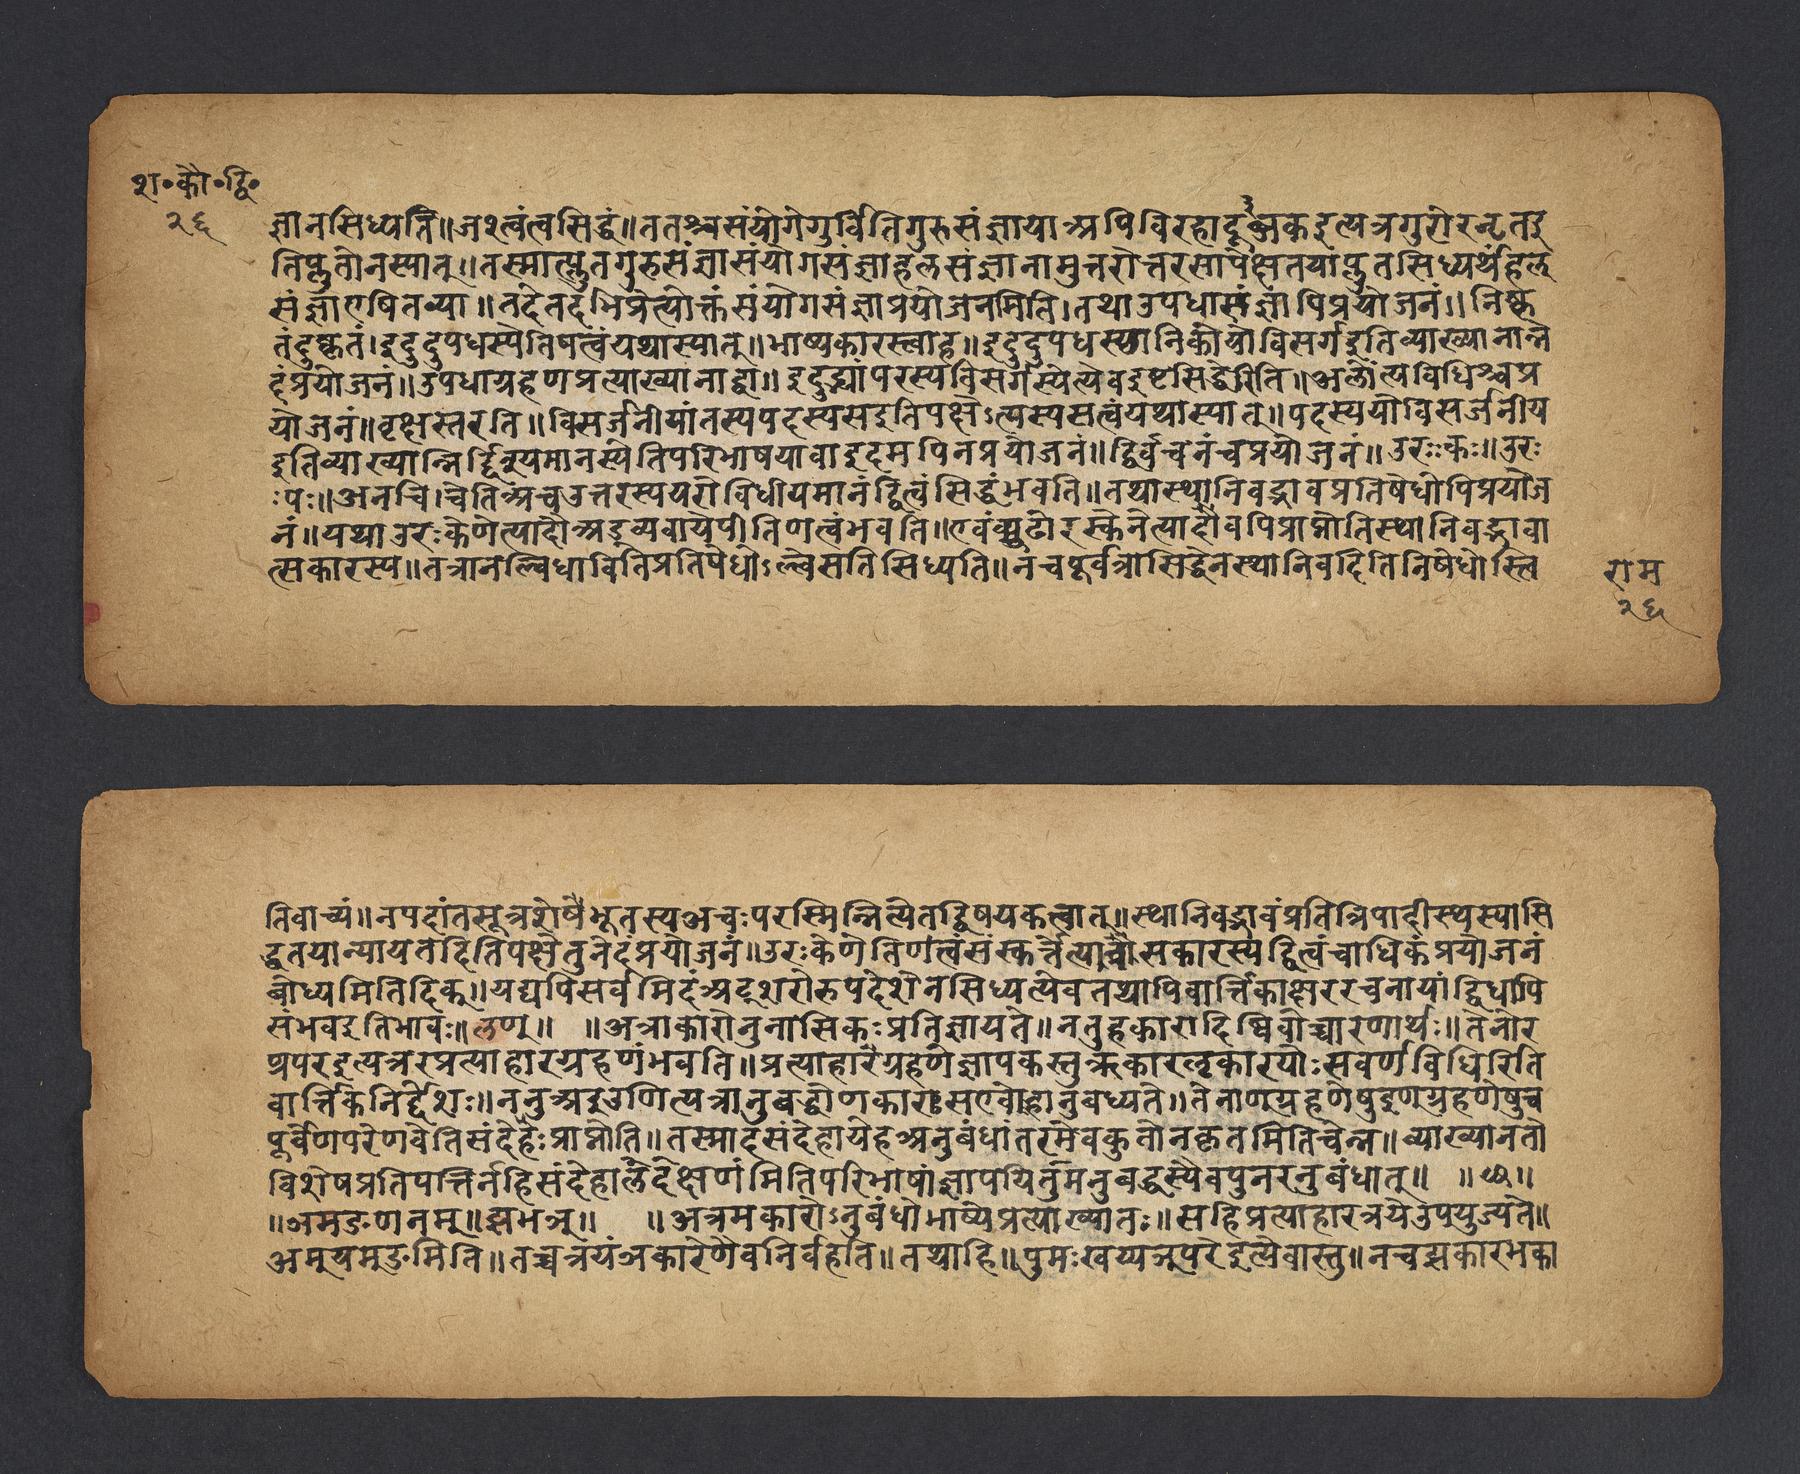 श॰कौ॰द्वि॰
२६
ज्ञानसिध्यति॥जश्त्वंत्वसिद्धं॥ततश्चसंयोगेगुर्वितिगुरुसंज्ञायाअपिविरहादू३ञ्जकइत्यत्रगुरोरनृतइ
तिप्लुतोनस्यात्॥तस्मात्प्लुतगुरुसंज्ञासंयोगसंज्ञाहलसंज्ञानामुत्तरोत्तरसापेक्षतयाप्लुतसिध्यर्थंहल्
संज्ञाएषितव्या॥तदेतदभिप्रेत्योक्तंसंयोगसंज्ञाप्रयोजनमिति।तथाउपधासंज्ञापिप्रयोजनं॥निष्कृ
तंदुष्कृतं।इदुदुपधस्येतिषत्वंयथास्यात्॥भाष्यकारस्त्वाह॥इदुदुपधस्यानिकोयोविसर्गइतिव्याख्यानान्ने
दंप्रयोजनं॥उपधाग्रहणप्रत्याख्यानाद्वा॥इदुद्भ्यांपरस्यविसर्गस्येत्येवइष्टसिद्धेरिति॥अलोंत्यविधिश्चप्र
योजनं॥वृक्षस्तरति॥विसर्जनीयांतस्यपदस्यसइतिपक्षेऽत्यस्यसत्वंयथास्यात्॥पदस्ययोविसर्जनीय
इतिव्याख्यान्निर्द्दिश्यमानस्येतिपरिभाषयावाइदमपिनप्रयोजनं॥द्विर्वचनंचप्रयोजनं॥उरःकः॥उरः
ःपः॥अनचि।चेतिअचउत्तरस्ययरोविधीयमानंद्वित्वंसिद्धंभवति॥तथास्थानिवद्भावप्रतिषेधोपिप्रयोज
नं॥यथाउरःकेणेत्यादौअड्व्यवायेपीतिणत्वंभवति॥एवंव्यूढोरस्केनेत्यादौवपिप्राप्नोतिस्थानिवद्भावा
त्सकारस्य॥तत्रानल्विधावितिप्रतिषेधोऽल्त्वेसतिसिध्यति॥नचपूर्वत्रासिद्धेनस्थानिवदितिनिषेधोस्त्वि
राम
२६
तिवाच्यं॥नपदांतसूत्रशेषभूतस्यअचःपरस्मिन्नित्येतद्विषयकत्वात्॥स्थानिवद्भावंप्रतित्रिपादीस्थस्यासि
द्धतयान्यायतेदितिपक्षेतुनेदंप्रयोजनं॥उरःकेणेतिणत्वंसंस्कर्त्तेत्यादौसकारस्यद्वित्वंचाधिकंप्रयोजनं
बोध्यमितिदिक्॥यद्यपिसर्वमिदंअट्शरोरुपदेशेनसिध्यत्येवतथापिवार्त्तिकाक्षररचनायांद्विधापि
संभवइतिभावः॥लण्॥ ॥अत्राकारोनुनासिकःप्रतिज्ञायते॥नतुहकारादिष्विवोच्चारणार्थः॥तेनोर
ण्रपरइत्यत्ररप्रत्याहारग्रहणंभवति॥प्रत्याहारेग्रहणेज्ञापकस्तुऋकारलृकारयोःसवर्णविधिरिति
वार्त्तिकेनिर्द्देशः॥ननुअइउणित्यत्रानुबद्धोणकारःसएवोहानुबध्यते॥तेनाण्ग्रहणेषुइण्ग्रहणेषुच
पूर्वेणपरेणवेतिसंदेहःप्राप्नोति॥तस्मादसंदेहायेहअनुबंधांतरमेवकुतोनकृतमितिचेन्न॥व्याख्यानतो
विशेषप्रतिपत्तिर्नहिसंदेहादलक्षणमितिपरिभाषांज्ञापयितुमनुबद्धस्यैवपुनरनुबंधात्॥ ॥छ॥
॥ञमङणनम्॥झभञ्॥ ॥अत्रमकारोऽनुबंधोभाष्येप्रत्याख्यातः॥सहिप्रत्याहारत्रयेउपयुज्यते॥
अम्यम्ङमिति॥तच्चत्रयंञकारेणैवनिर्वहति॥तथाहि॥पुमःखय्यञ्परेइत्येवास्तु॥नचझकारभका